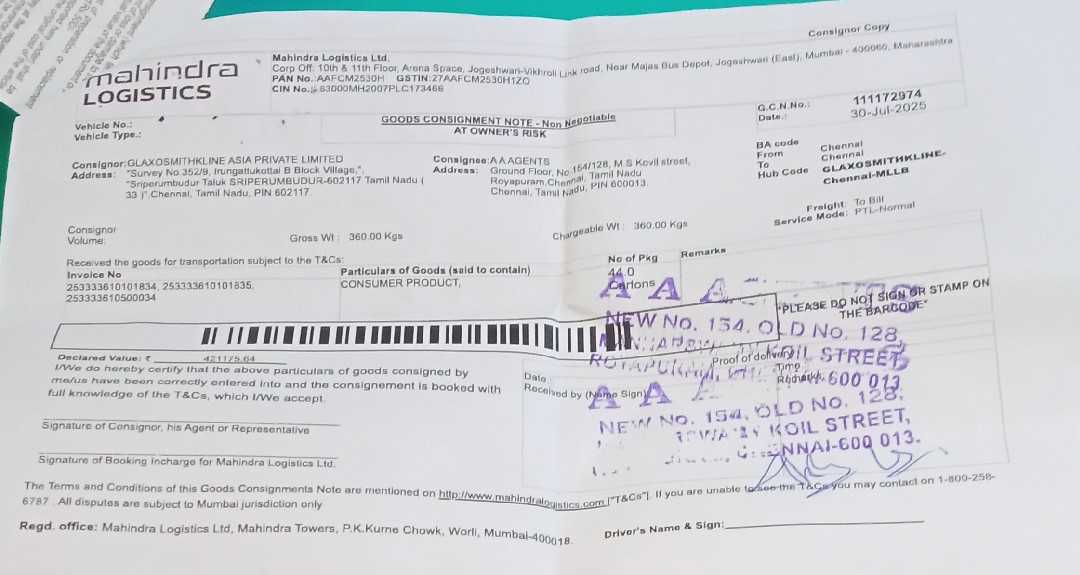 Consignor Copy
mahindra
LOGISTICS
Mahindra Logistics Ltd,
Corp Off: 10th & 11th Floor, Arena Space, Jogeshwari-Vikhroli Link road, Near Majas Bus Depot, Jogeshwari (East), Mumbai - 400060, Maharashtra
PAN No.:AAFCM2530H GSTIN:27AAFCM2530H1ZO
CIN No.: 63000MH2007PLC173466
Vehicle No.:
Vehicle Type.:
GOODS CONSIGNMENT NOTE - Non Negotiable
AT OWNER'S RISK
G.C.N.No.: 111172974
Date.: 30-Jul-2025
Consignor:GLAXOSMITHKLINE ASIA PRIVATE LIMITED
Address: "Survey No.352/9, Irungattukottai B Block Village,",
"Sriperumbudur Taluk SRIPERUMBUDUR-602117 Tamil Nadu (
33 )",Chennai, Tamil Nadu, PIN 602117
Consignee:A A AGENTS
Address: Ground Floor, No.154/128, M S Kovil street,
Royapuram,Chennai, Tamil Nadu
Chennai, Tamil Nadu, PIN 600013
BA code Chennai
From Chennai
To GLAXOSMITHKLINE-
Hub Code Chennai-MLLB
Freight: To Bill
Service Mode: PTL-Normal
Consignor
Volume:
Gross Wt : 360.00 Kgs
Chargeable Wt : 360.00 Kgs
Received the goods for transportation subject to the T&Cs:
Invoice No
253333610101834, 253333610101835,
253333610500034
Particulars of Goods (said to contain)
CONSUMER PRODUCT,
No of Pkg
44.0
Cartons
Remarks
"PLEASE DO NOT SIGN OR STAMP ON
THE BARCODE"
A A A
NEW No. 154, OLD No. 128,
KOIL STREET,
600 013
Declared Value: ₹ 421175.64
I/We do hereby certify that the above particulars of goods consigned by
me/us have been correctly entered into and the consignement is booked with
full knowledge of the T&Cs, which I/We accept.
Proof of delivery
Date :
Time
Received by (Name Sign)
A A
NEW No. 154, OLD No. 128,
KOIL STREET,
NNAI-600 013.
Signature of Consignor, his Agent or Representative
Signature of Booking Incharge for Mahindra Logistics Ltd.
The Terms and Conditions of this Goods Consignments Note are mentioned on http://www.mahindralogistics.com ["T&Cs"]. If you are unable to see the T&Cs you may contact on 1-800-258-
6787 . All disputes are subject to Mumbai jurisdiction only
Regd. office: Mahindra Logistics Ltd, Mahindra Towers, P.K.Kurne Chowk, Worli, Mumbai-400018.
Driver's Name & Sign: